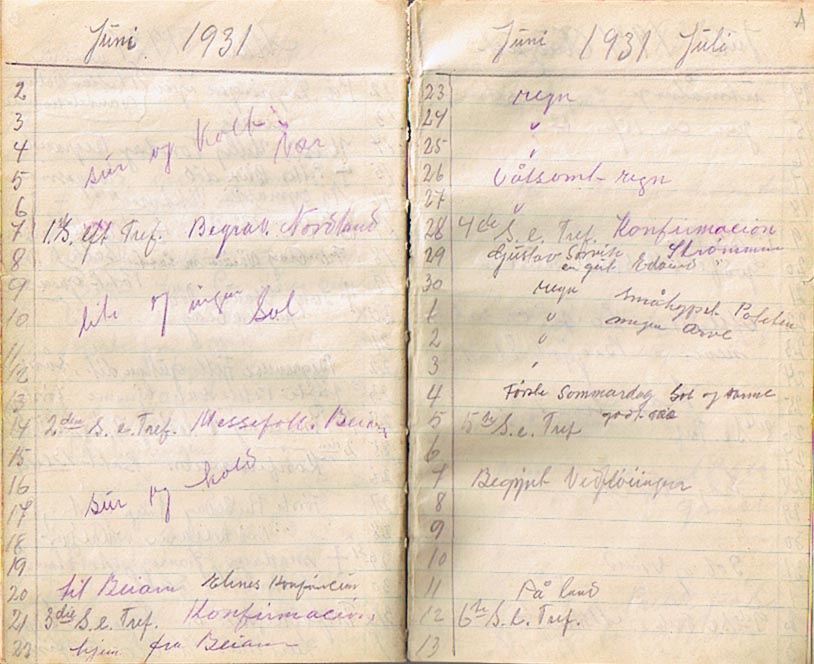 Juni 1931
2
3
4 sur og kalt
5 Vær
6
7 1. S. eft Tref. Begrav. Nordland
8
9 lite og ingen
10 Sol
11
12
13
14 2den S. e. Tref. Messefolk Beiarn
15
16 sur og kold
17
18
19
20 til Beiarn Elines Konfirmacion
21 3die S. e. Tref. Konfirmacion
22 hjem fra Beiarn
Juni 1931 Juli
A
23 regn
24 "
25 "
26 Våtsomt regn
27 "
28 4de S. e. Tref. Konfirmacion
29 Gustav en gut
30 regn småhyppet Poteten
1 " ingen
2 "
3 "
4 Første Sommardag Sol og varme
5 5te S. e. Tref godt
6
7 Begynt
8
9
10
11 På land
12 6te S. e. Tref.
13